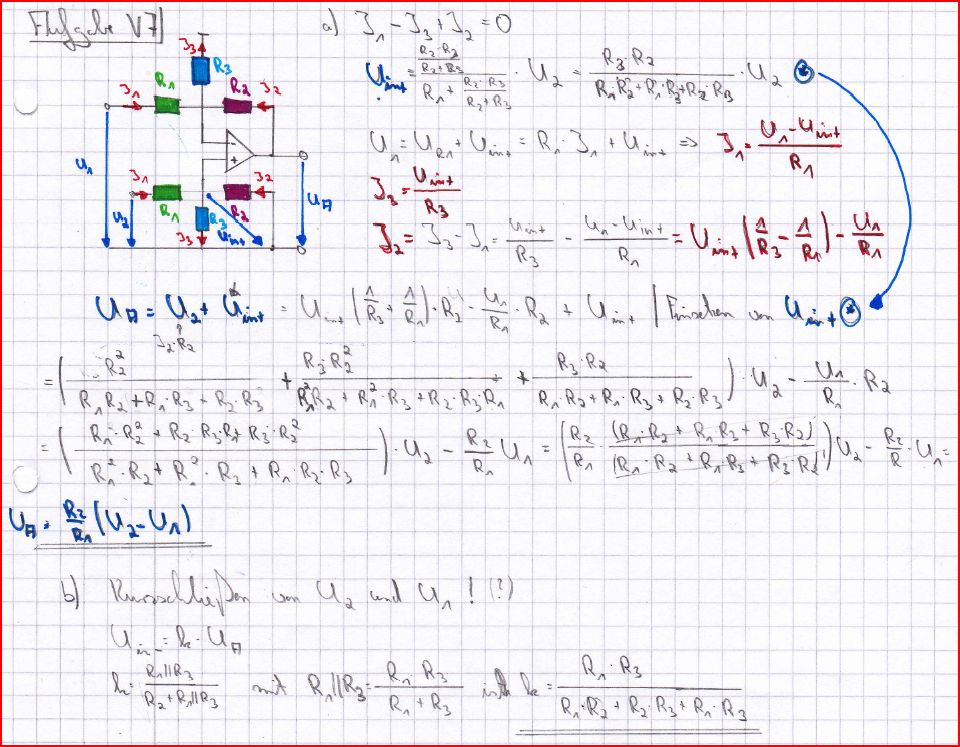 Aufgabe V7
a) I₁ - I₃ + I₂ = 0
I₃ R₃
I₁ R₁ R₂ I₂
U₁ - +
I₁ R₁ R₂ I₂ U_A
U₂ I₃ R₃ U_int
U_int = ((R₂·R₃)/(R₂+R₃))/(R₁ + (R₂·R₃)/(R₂+R₃)) · U₂ = (R₃·R₂)/(R₁·R₂+R₁·R₃+R₂·R₃) · U₂ (*)
U₁ = U_R1 + U_int = R₁·I₁ + U_int => I₁ = (U₁-U_int)/R₁
I₃ = U_int/R₃
I₂ = I₃-I₁ = U_int/R₃ - (U₁-U_int)/R₁ = U_int (1/R₃ - 1/R₁) - U₁/R₁
U_A = U₂ + U_int = U_int (1/R₃ + 1/R₁)·R₂ - U₁/R₁·R₂ + U_int | Einsetzen von U_int (*)
I₂·R₂
= (R₂²/(R₁R₂+R₁·R₃+R₂·R₃) + (R₃·R₂²)/(R₁²R₂+R₁²·R₃+R₂·R₃·R₁) + (R₃·R₂)/(R₁·R₂+R₁·R₃+R₂·R₃)) · U₂ - U₁/R₁ · R₂
= ((R₁·R₂² + R₂·R₃·R₁ + R₃·R₂²)/(R₁²·R₂ + R₁²·R₃ + R₁·R₂·R₃)) · U₂ - R₂/R₁ U₁ = (R₂/R₁ · (R₁·R₂+R₁R₃+R₃·R₂)/(R₁·R₂+R₁R₃+R₃·R₂)) U₂ - R₂/R · U₁ =
U_A = R₂/R₁ (U₂-U₁)
b) Kurzschließen von U₂ und U₁! (?)
U_in- = k·U_A
k = (R₁||R₃)/(R₂+R₁||R₃) mit R₁||R₃ = (R₁·R₃)/(R₁+R₃) ist k = (R₁·R₃)/(R₁·R₂+R₂·R₃+R₁·R₃)